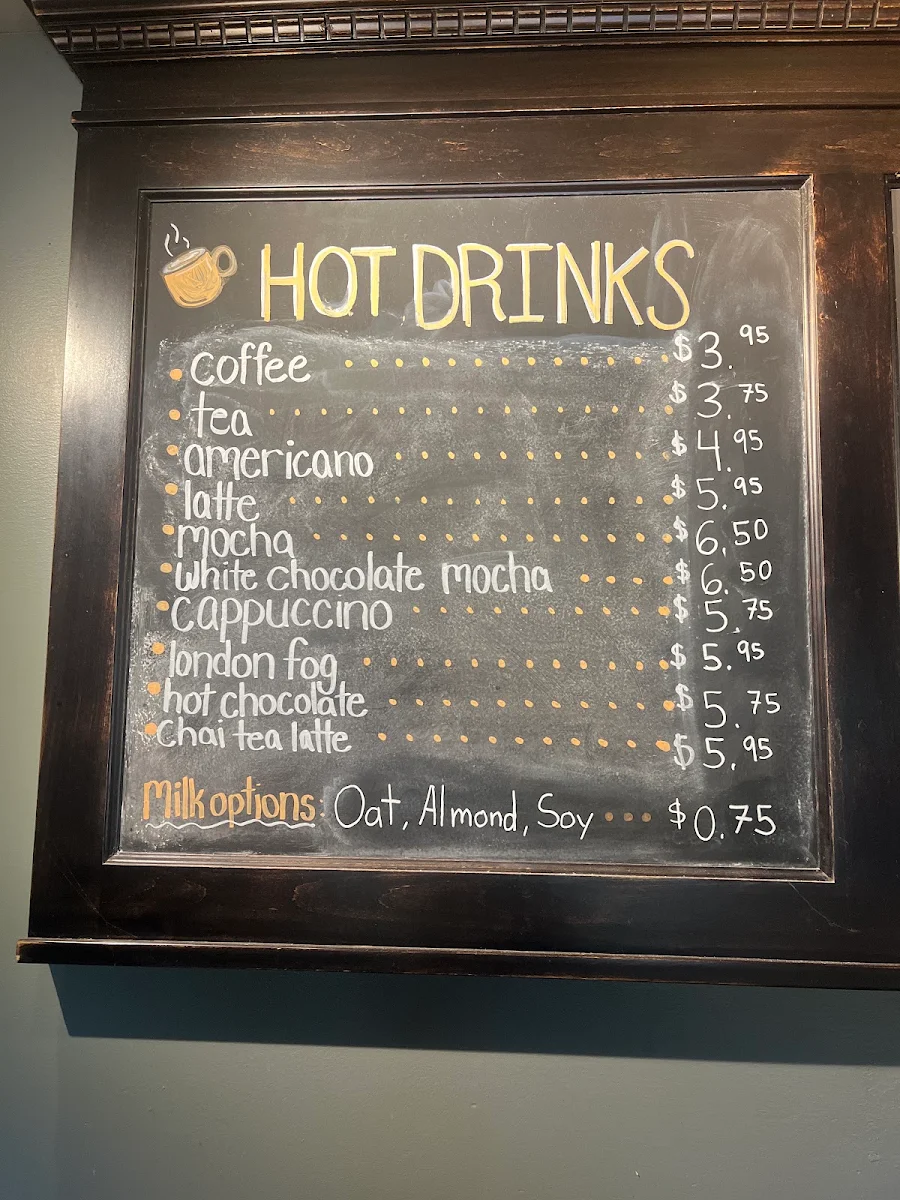 HOT DRINKS
• coffee ............ $3.95
• tea ............... $3.75
• americano ........... $4.95
• latte ........... $5.95
• mocha ............. $6.50
• white chocolate mocha .... $6.50
• cappuccino .......... $5.75
• london fog ............ $5.95
• hot chocolate ........... $5.75
• Chai tea latte ........... $5.95
Milk options: Oat, Almond, Soy ... $0.75